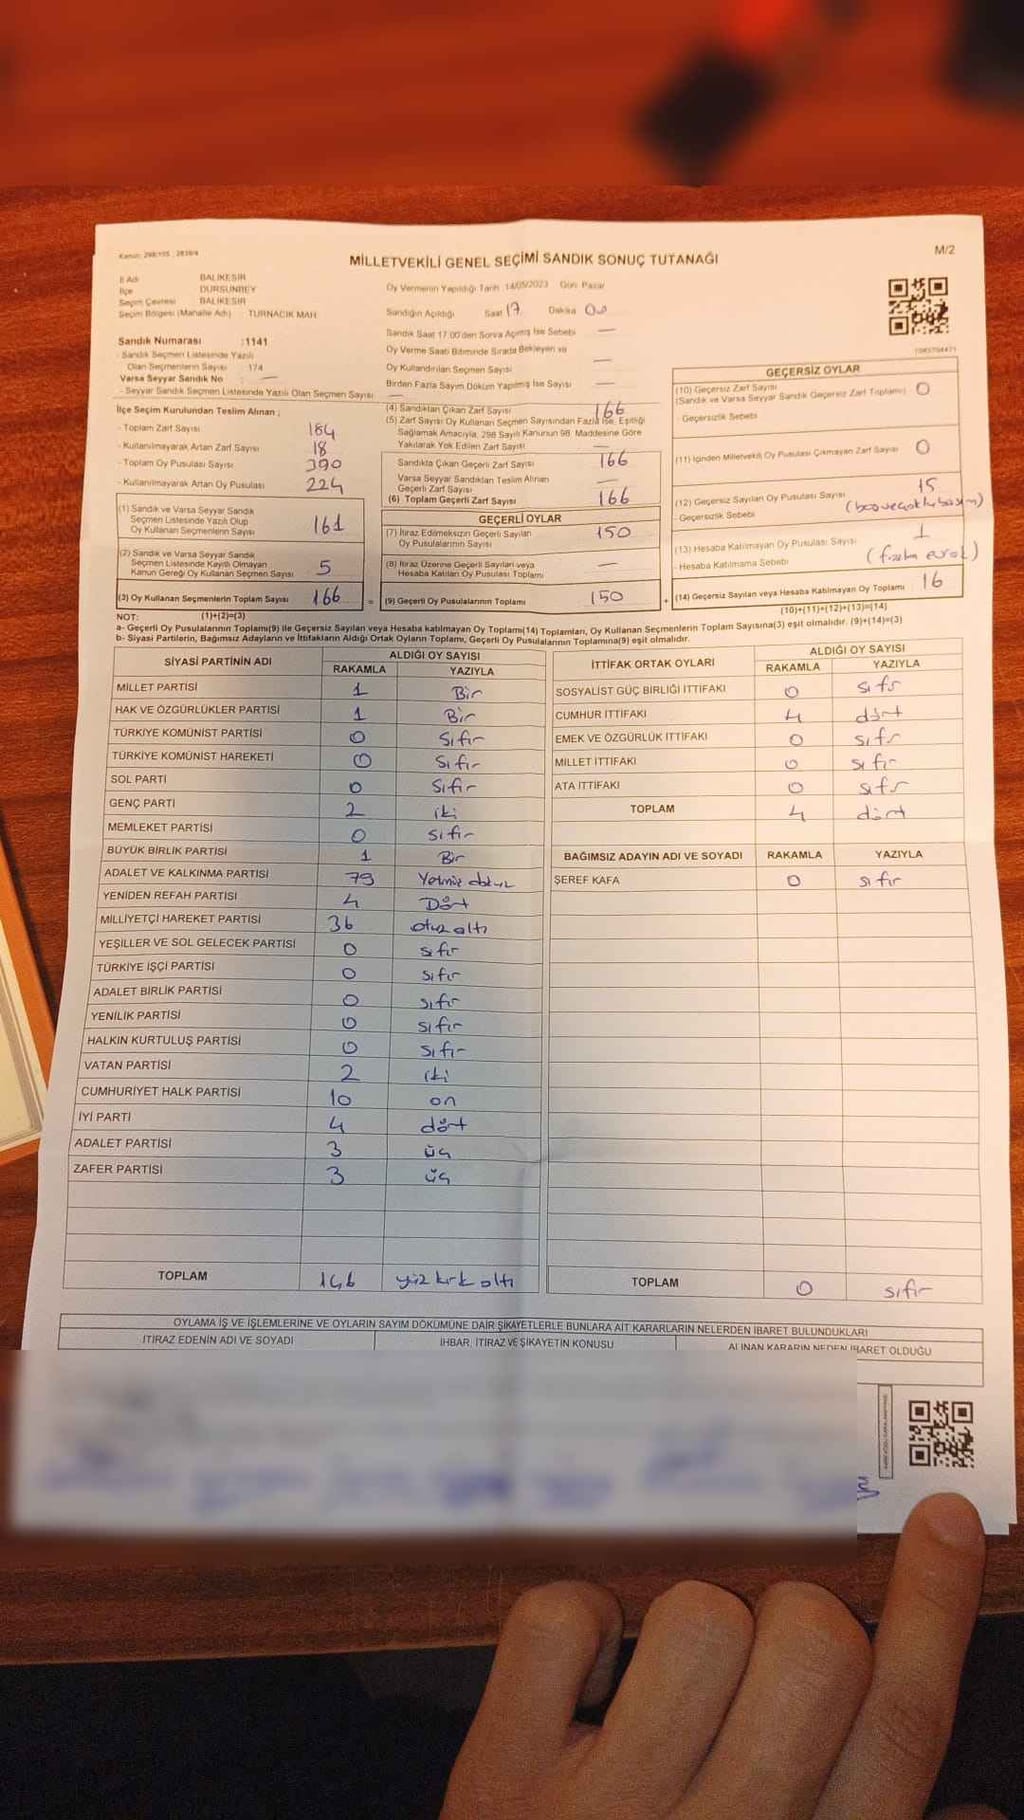 Kanun: 298/105, 2839/4
M/2
MİLLETVEKİLİ GENEL SEÇİMİ SANDIK SONUÇ TUTANAĞI
İl Adı BALIKESİR
İlçe DURSUNBEY
Seçim Çevresi BALIKESİR
Seçim Bölgesi (Mahalle Adı) TURNACIK MAH.
Oy Vermenin Yapıldığı Tarih :14/05/2023 Gün: Pazar
Sandığın Açıldığı Saat 17 Dakika 00
Sandık Saat 17:00'den Sonra Açılmış İse Sebebi —
Oy Verme Saati Bitiminde Sırada Bekleyen ve
Oy Kullandırılan Seçmen Sayısı —
Birden Fazla Sayım Döküm Yapılmış İse Sayısı —
Sandık Numarası :1141
- Sandık Seçmen Listesinde Yazılı
Olan Seçmenlerin Sayısı : 174
Varsa Seyyar Sandık No —
- Seyyar Sandık Seçmen Listesinde Yazılı Olan Seçmen Sayısı —
İlçe Seçim Kurulundan Teslim Alınan ;
- Toplam Zarf Sayısı 184
- Kullanılmayarak Artan Zarf Sayısı 18
- Toplam Oy Pusulası Sayısı 390
- Kullanılmayarak Artan Oy Pusulası 224
(1) Sandık ve Varsa Seyyar Sandık
Seçmen Listesinde Yazılı Olup
Oy Kullanan Seçmenlerin Sayısı 161
(2) Sandık ve Varsa Seyyar Sandık
Seçmen Listesinde Kayıtlı Olmayan
Kanun Gereği Oy Kullanan Seçmen Sayısı 5
(3) Oy Kullanan Seçmenlerin Toplam Sayısı 166
(4) Sandıktan Çıkan Zarf Sayısı 166
(5) Zarf Sayısı Oy Kullanan Seçmen Sayısından Fazla İse, Eşitliği
Sağlamak Amacıyla, 298 Sayılı Kanunun 98. Maddesine Göre
Yakılarak Yok Edilen Zarf Sayısı —
Sandıkta Çıkan Geçerli Zarf Sayısı 166
Varsa Seyyar Sandıktan Teslim Alınan
Geçerli Zarf Sayısı —
(6) Toplam Geçerli Zarf Sayısı 166
GEÇERLİ OYLAR
(7) İtiraz Edilmeksizin Geçerli Sayılan
Oy Pusulalarının Sayısı 150
(8) İtiraz Üzerine Geçerli Sayılan veya
Hesaba Katılan Oy Pusulaları Toplamı —
= (9) Geçerli Oy Pusulalarının Toplamı 150 +
GEÇERSİZ OYLAR
(10) Geçersiz Zarf Sayısı
(Sandık ve Varsa Seyyar Sandık Geçersiz Zarf Toplamı) 0
-Geçersizlik Sebebi
(11) İçinden Milletvekili Oy Pusulası Çıkmayan Zarf Sayısı 0
(12) Geçersiz Sayılan Oy Pusulası Sayısı 15
-Geçersizlik Sebebi
(13) Hesaba Katılmayan Oy Pusulası Sayısı 1
- Hesaba Katılmama Sebebi (fazla evrak)
(14) Geçersiz Sayılan veya Hesaba Katılmayan Oy Toplamı 16
NOT: (1)+(2)=(3)
(10)+(11)+(12)+(13)=(14)
a- Geçerli Oy Pusulalarının Toplamı(9) ile Geçersiz Sayılan veya Hesaba katılmayan Oy Toplamı(14) Toplamları, Oy Kullanan Seçmenlerin Toplam Sayısına(3) eşit olmalıdır. (9)+(14)=(3)
b- Siyasi Partilerin, Bağımsız Adayların ve İttifakların Aldığı Ortak Oyların Toplamı, Geçerli Oy Pusulalarının Toplamına(9) eşit olmalıdır.
SİYASİ PARTİNİN ADI ALDIĞI OY SAYISI
RAKAMLA YAZIYLA
MİLLET PARTİSİ 1 Bir
HAK VE ÖZGÜRLÜKLER PARTİSİ 1 Bir
TÜRKİYE KOMÜNİST PARTİSİ 0 Sıfır
TÜRKİYE KOMÜNİST HAREKETİ 0 Sıfır
SOL PARTİ 0 Sıfır
GENÇ PARTİ 2 iki
MEMLEKET PARTİSİ 0 sıfır
BÜYÜK BİRLİK PARTİSİ 1 Bir
ADALET VE KALKINMA PARTİSİ 79 Yetmiş dokuz
YENİDEN REFAH PARTİSİ 4 Dört
MİLLİYETÇİ HAREKET PARTİSİ 36 otuz altı
YEŞİLLER VE SOL GELECEK PARTİSİ 0 sıfır
TÜRKİYE İŞÇİ PARTİSİ 0 sıfır
ADALET BİRLİK PARTİSİ 0 sıfır
YENİLİK PARTİSİ 0 sıfır
HALKIN KURTULUŞ PARTİSİ 0 sıfır
VATAN PARTİSİ 2 iki
CUMHURİYET HALK PARTİSİ 10 on
İYİ PARTİ 4 dört
ADALET PARTİSİ 3 üç
ZAFER PARTİSİ 3 üç
TOPLAM 146 yüz kırk altı
İTTİFAK ORTAK OYLARI ALDIĞI OY SAYISI
RAKAMLA YAZIYLA
SOSYALİST GÜÇ BİRLİĞİ İTTİFAKI 0 sıfır
CUMHUR İTTİFAKI 4 dört
EMEK VE ÖZGÜRLÜK İTTİFAKI 0 sıfır
MİLLET İTTİFAKI 0 sıfır
ATA İTTİFAKI 0 sıfır
TOPLAM 4 dört
BAĞIMSIZ ADAYIN ADI VE SOYADI RAKAMLA YAZIYLA
ŞEREF KAFA 0 sıfır
TOPLAM 0 sıfır
OYLAMA İŞ VE İŞLEMLERİNE VE OYLARIN SAYIM DÖKÜMÜNE DAİR ŞİKAYETLERLE BUNLARA AİT KARARLARIN NELERDEN İBARET BULUNDUKLARI
İTİRAZ EDENİN ADI VE SOYADI İHBAR, İTİRAZ VE ŞİKAYETİN KONUSU ALINAN KARARIN NEDEN İBARET OLDUĞU